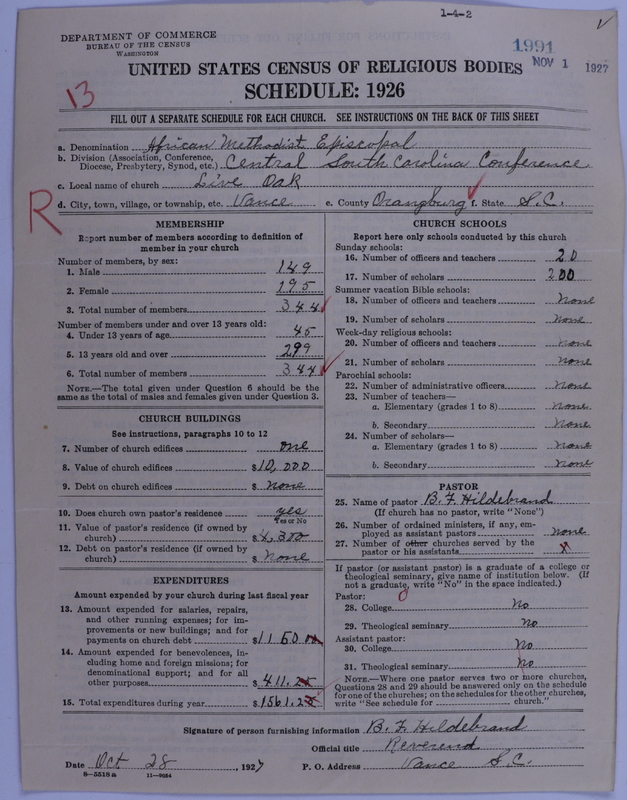 1-4-2
DEPARTMENT OF COMMERCE
BUREAU OF THE CENSUS
WASHINGTON
1991
NOV 1 1927
UNITED STATES CENSUS OF RELIGIOUS BODIES
SCHEDULE: 1926
13
FILL OUT A SEPARATE SCHEDULE FOR EACH CHURCH. SEE INSTRUCTIONS ON THE BACK OF THIS SHEET
a. Denomination African Methodist Episcopal
b. Division (Association, Conference, Diocese, Presbytery, Synod, etc.) Central South Carolina Conference
c. Local name of church Live Oak
R
d. City, town, village, or township, etc. Vance e. County Orangburg f. State S.C.
MEMBERSHIP
Report number of members according to definition of
member in your church
Number of members, by sex:
1. Male 149
2. Female 195
3. Total number of members 344
Number of members under and over 13 years old:
4. Under 13 years of age 45
5. 13 years old and over 299
6. Total number of members 344
NOTE.—The total given under Question 6 should be the
same as the total of males and females given under Question 3.
CHURCH BUILDINGS
See instructions, paragraphs 10 to 12
7. Number of church edifices one
8. Value of church edifices $10,000
9. Debt on church edifices $ none
10. Does church own pastor's residence yes
Yes or No
11. Value of pastor's residence (if owned by
church) $4,300
12. Debt on pastor's residence (if owned by
church) $ none
EXPENDITURES
Amount expended by your church during last fiscal year
13. Amount expended for salaries, repairs,
and other running expenses; for im-
provements or new buildings; and for
payments on church debt $1150 00
14. Amount expended for benevolences, in-
cluding home and foreign missions; for
denominational support; and for all
other purposes $411.25
15. Total expenditures during year $1561.25
CHURCH SCHOOLS
Report here only schools conducted by this church
Sunday schools:
16. Number of officers and teachers 20
17. Number of scholars 200
Summer vacation Bible schools:
18. Number of officers and teachers none
19. Number of scholars none
Week-day religious schools:
20. Number of officers and teachers none
21. Number of scholars none
Parochial schools:
22. Number of administrative officers none
23. Number of teachers—
a. Elementary (grades 1 to 8) none
b. Secondary none
24. Number of scholars—
a. Elementary (grades 1 to 8) none
b. Secondary none
PASTOR
25. Name of pastor B. F. Hildebrand
(If church has no pastor, write "None")
26. Number of ordained ministers, if any, em-
ployed as assistant pastors none
27. Number of other churches served by the
pastor or his assistants
If pastor (or assistant pastor) is a graduate of a college or
theological seminary, give name of institution below. (If
not a graduate, write "No" in the space indicated.)
Pastor:
28. College No
29. Theological seminary No
Assistant pastor:
30. College No
31. Theological seminary No
NOTE.—Where one pastor serves two or more churches,
Questions 28 and 29 should be answered only on the schedule
for one of the churches; on the schedules for the other churches,
write "See schedule for church."
Signature of person furnishing information B. F. Hildebrand
Official title Reverend
Date Oct 28, 1927 P. O. Address Vance S.C.
8-5518a 11-9034